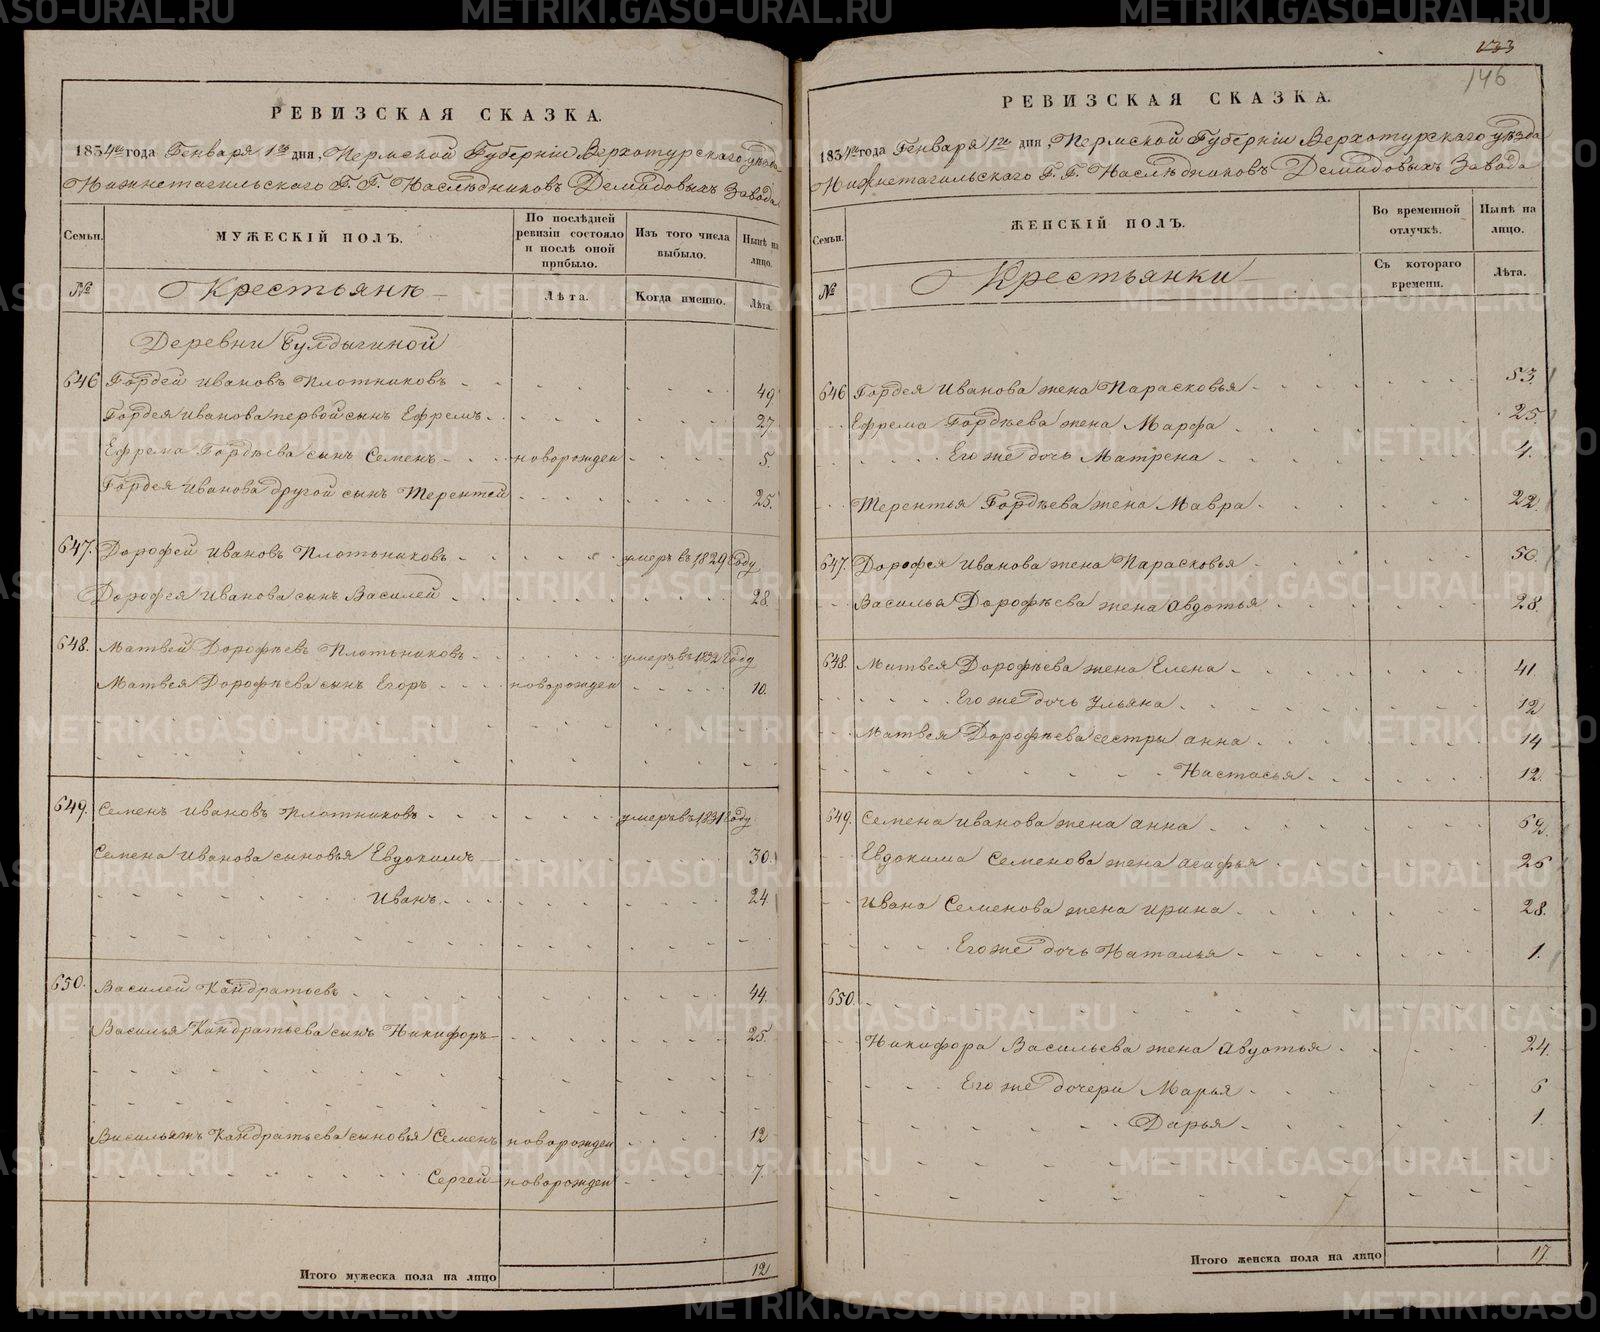 133
146
РЕВИЗСКАЯ СКАЗКА.
1834го года Генваря 1го дня, Пермской Губерніи Верхотурскаго уѣзда
Нижнетагильскаго Г. Г. Наслѣдниковъ Демидовыхъ Завода
Семьи.
МУЖЕСКІЙ ПОЛЪ.
По послѣдней ревизіи состояло и послѣ оной прибыло.
Изъ того числа выбыло.
Нынѣ на лицо.
№
Крестьянѣ
Лѣта.
Когда именно.
Лѣта.
Деревни Булдыгиной
646 Гордей Ивановъ Плотниковъ 49
Гордея Иванова первой сынъ Ефремъ 27
Ефрема Гордѣева сынъ Семенъ новорожден 5.
Гордея Иванова другой сынъ Терентей 25.
647. Дорофей Ивановъ Плотъниковъ умеръ въ 1829 году
Дорофея Иванова сынъ Василей 28.
648. Матвей Дорофѣевъ Плотъниковъ умеръ въ 1832 году
Матвея Дорофѣева сынъ Егоръ новорожден 10.
649. Семенъ Ивановъ Плотниковъ умеръ въ 1831 году
Семена Иванова сыновья Евдокимъ 30.
Иванъ 24
650. Василей Кандратьевъ 44.
Василья Кандратьева сынъ Никифоръ 25.
Васильяжъ Кандратьева сыновья Семенъ новорожден 12
Сергей новорожден 7.
Итого мужеска пола на лицо 12
РЕВИЗСКАЯ СКАЗКА.
1834го года Генваря 1го дня, Пермской Губерніи Верхотурскаго уѣзда
Нижнетагильскаго Г. Г. Наслѣдниковъ Демидовыхъ Завода
Семьи.
ЖЕНСКІЙ ПОЛЪ.
Во временной отлучкѣ.
Нынѣ на лицо.
№
Крестьянки
Съ котораго времени.
Лѣта.
646 Гордея Иванова жена Парасковья 53.
Ефрема Гордѣева жена Марфа 25.
Его же дочь Матрена 4.
Терентья Гордѣева жена Мавра 22.
647. Дорофея Иванова жена Парасковья 50.
Василья Дорофѣева жена Авдотья 28.
648. Матвея Дорофѣева жена Елена 41.
Его же дочь Ульяна 12
Матвея Дорофѣева сестры Анна 14
Настасья 12.
649. Семена Иванова жена Анна 69.
Евдокима Семенова жена Агафья 26
Ивана Семенова жена Ирина 28.
Его же дочь Наталья 1.
650.
Никифора Васильева жена Авдотья 24.
Его же дочери Марья 6
Дарья 1.
Итого женска пола на лицо 17
METRIKI.GASO-URAL.RU